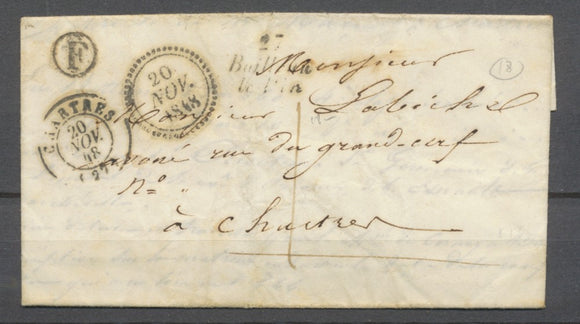 F
20
NOV.
1848
27
Bailleau
le Pin
18
CHARTRES
20
NOV.
48
(27)
Monsieur
Monsieur Labiche
avoué rue du grand-cerf
n°. "
à Chartres
1